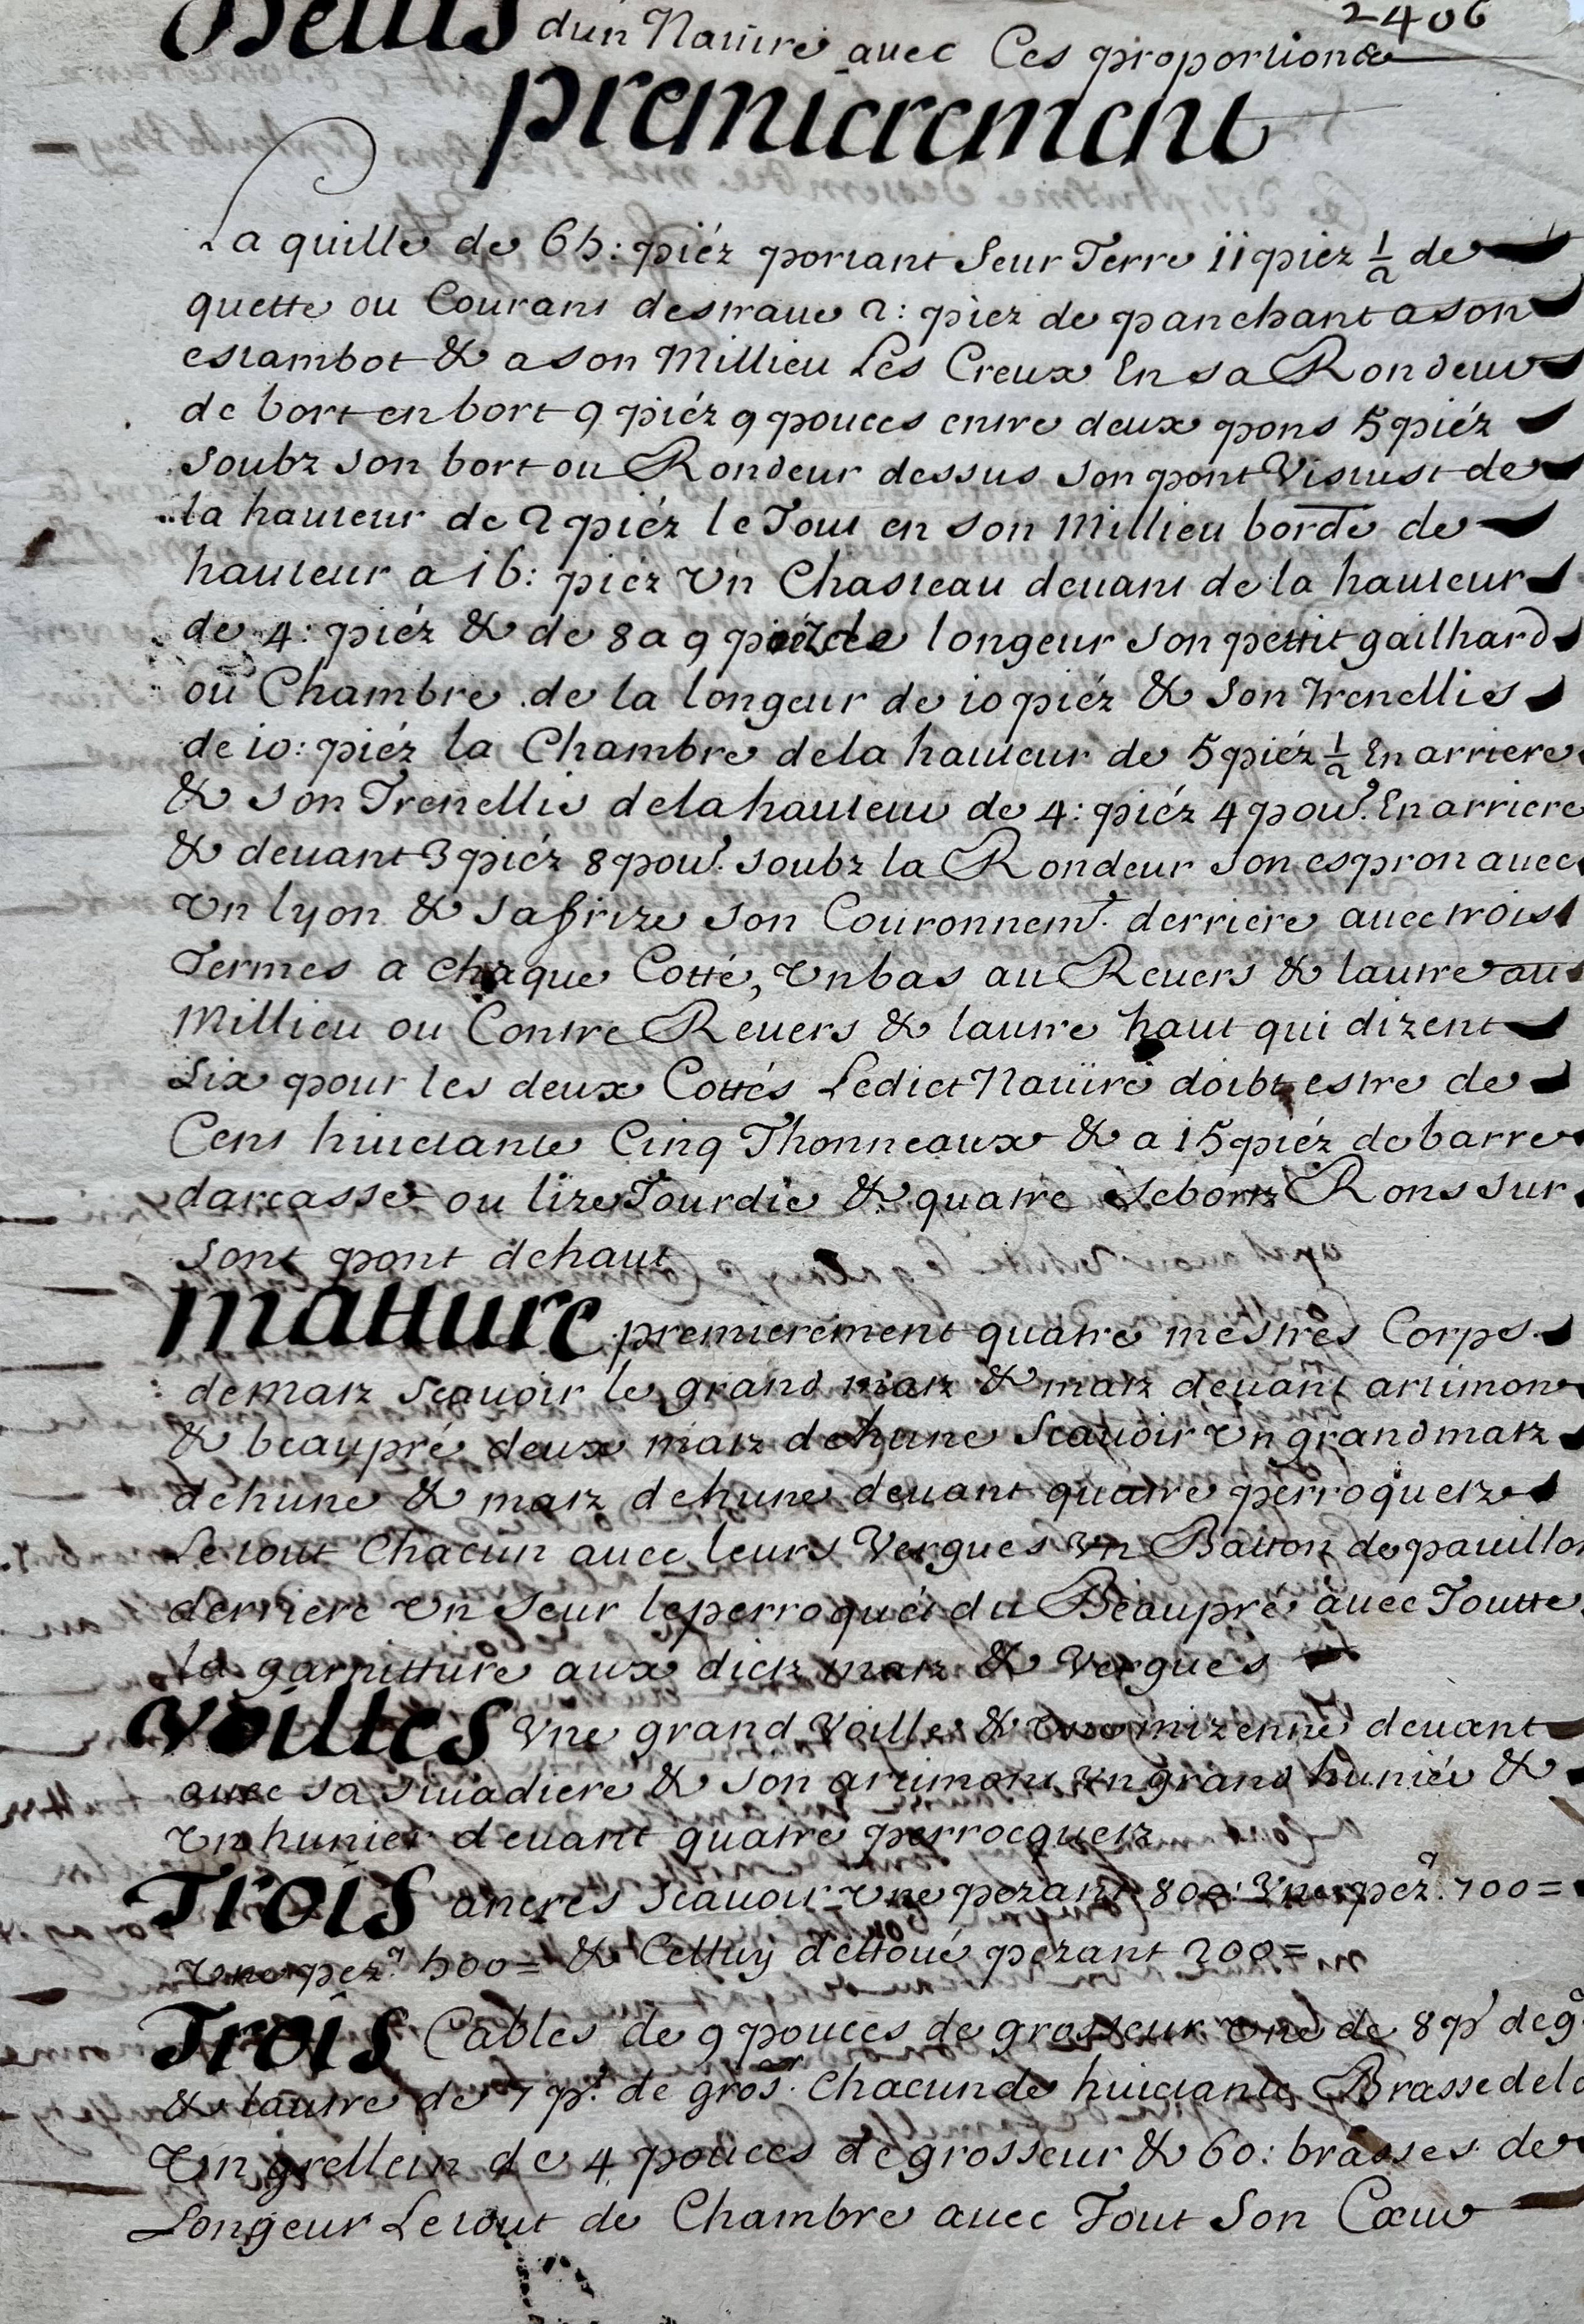 2406
Devis dun Navire avec Ces proportions
premierement
La quille de 65: piéz portant Seur Terre ii piez 1/2 de
quette ou Courant destraue 2: piez de panchant a son
estambot & a son Millieu Les Creux En sa Rondeur
de bort en bort 9 piéz 9 pouces entre deux pons 5 piéz
soubz son bort ou Rondeur dessus son pont de
la hauteur de 2 piéz le Tout en son Millieu borde de
hauteur a 16: piéz Vn Chasteau deuant de la hauteur
de 4: piéz & de 8 a 9 piéz de longeur son pettit gailhard
ou Chambre de la longeur de 10 piéz & son Trenellis
de 10: piéz la Chambre dela hauteur de 5 piéz 1/2 En arriere
& son Trenellis dela hauteur de 4: piéz 4 pou.s En arriere
& deuant 3 piéz 8 pou.s soubz la Rondeur son espron auec
Vn lyon & sa frize son Couronnem.t derriere auec trois
Termes a chaque Cotté, Vn bas au Reuers & lautre au
Millieu ou Contre Reuers & lautre haut qui dizent
Six pour les deux Cottés Ledict Nauire doibt estre de
Cent huictante Cinq Thonneaux & a 15 piéz de barre
darcasse ou lize Tourdie & quatre sebortz Rons sur
sont pont dehaut
matture premierement quatre mestres Corps
de matz scauoir le grand matz & matz deuant artimon
& beaupré deux matz dehune Scauoir Vn grand matz
dehune & matz dehune deuant quatre perroquetz
Le tout Chacun auec leurs Vergues Vn Batton de pauillon
derriere Vn Seur le perroquet du Beaupré auec Toutte
la garnitture aux dictz matz & Vergues
Voilles Vne grand Voille & Vne mizenne deuant
auec sa siuadiere & son artimont Vn grand hunier &
Vn hunier deuant quatre perrocquetz
Trois ancres scauoir Vne pezant 800: Vne pez.t 700=
Vne pez.t 500= & Celluy dettoué pezant 200=
Trois Cables de 9 pouces de grosseur Vne de 8 p.r de g.
& lautre de 7 p.r de gros.r Chacun de huictante Brasse de lo
Vn grellein de 4 pouces de grosseur & 60: brasses de
Longeur Le tout de Chambre auec Tout Son